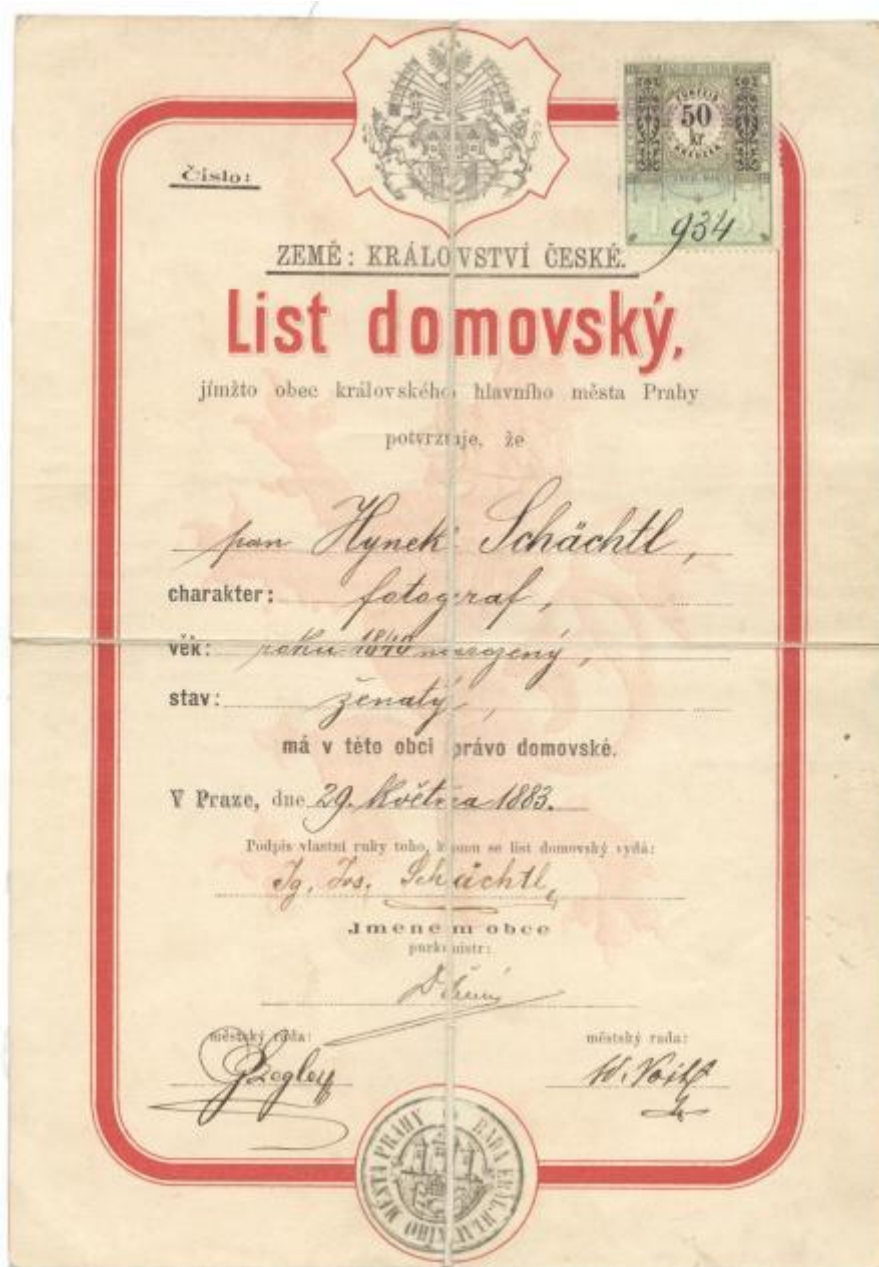 Číslo:
50
kr
934
ZEMĚ: KRÁLOVSTVÍ ČESKÉ.
List domovský,
jímžto obec královského hlavního města Prahy
potvrzuje, že
pan Hynek Schächtl,
charakter: fotograf,
věk: roku 1840 narozený,
stav: ženatý,
má v této obci právo domovské.
V Praze, dne 29. Května 1883.
Podpis vlastní ruky toho, komu se list domovský vydá:
Ig. Jos. Schächtl
Jmenem obce
purkmistr:
městský rada:
městský rada:
W. Voitl
RADA KRÁL. HLAVNÍHO MĚSTA PRAHY